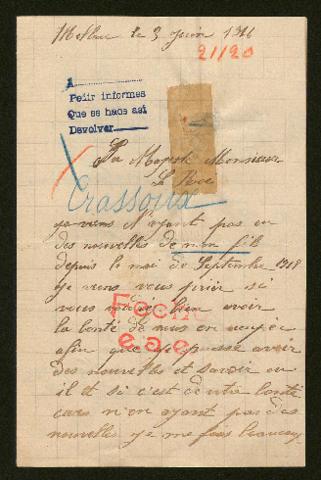 le 3 Juin 1916
21/20
A
Pedir informes
Que se hace así
Devolver
Sa Majesté Monsieur
Le Roi
je viens N'ayant pas eu
des nouvelles de mon fils
depuis le moi de Septembre
je viens vous prier si
vous bien avoir
la bonté de vous en occuper
afin que je puisse avoir
des nouvelles et savoir ou
il et si c'est de votre bonté
cars n'en ayant pas des
nouvelles je me fais beaucoup